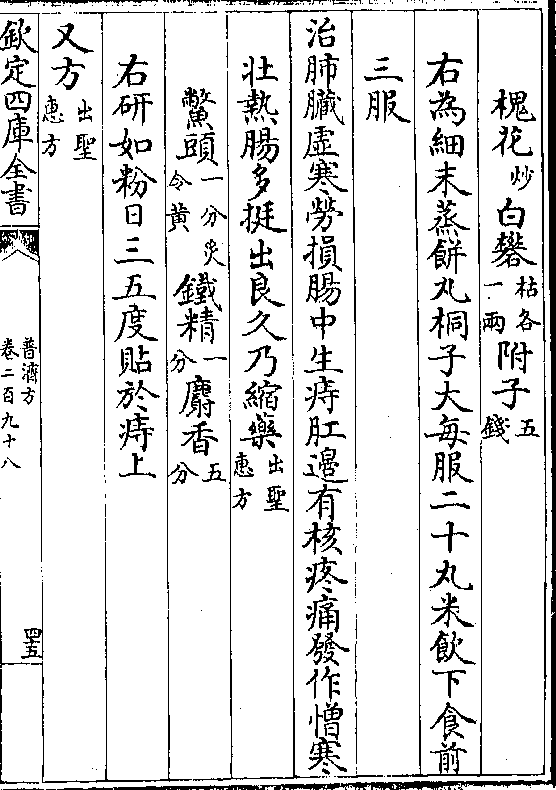 槐花炒白礬枯各一兩附子五錢
右為細末蒸餅丸桐子大每服二十丸米飲下食前
三服
治肺臟虛寒勞損腸中生痔肛邉有核疼痛發作憎寒
壯熱腸多挺出良久乃縮藥出聖惠方
鱉頭一分炙令黄鐵精一分麝香五分
右研如粉日三五度貼於痔上
又方出聖惠方
欽定四庫全書
普濟方
卷二百九十八
四五